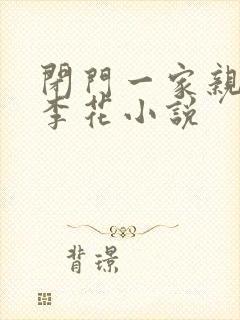 閉門一家親
李花小説
背璟